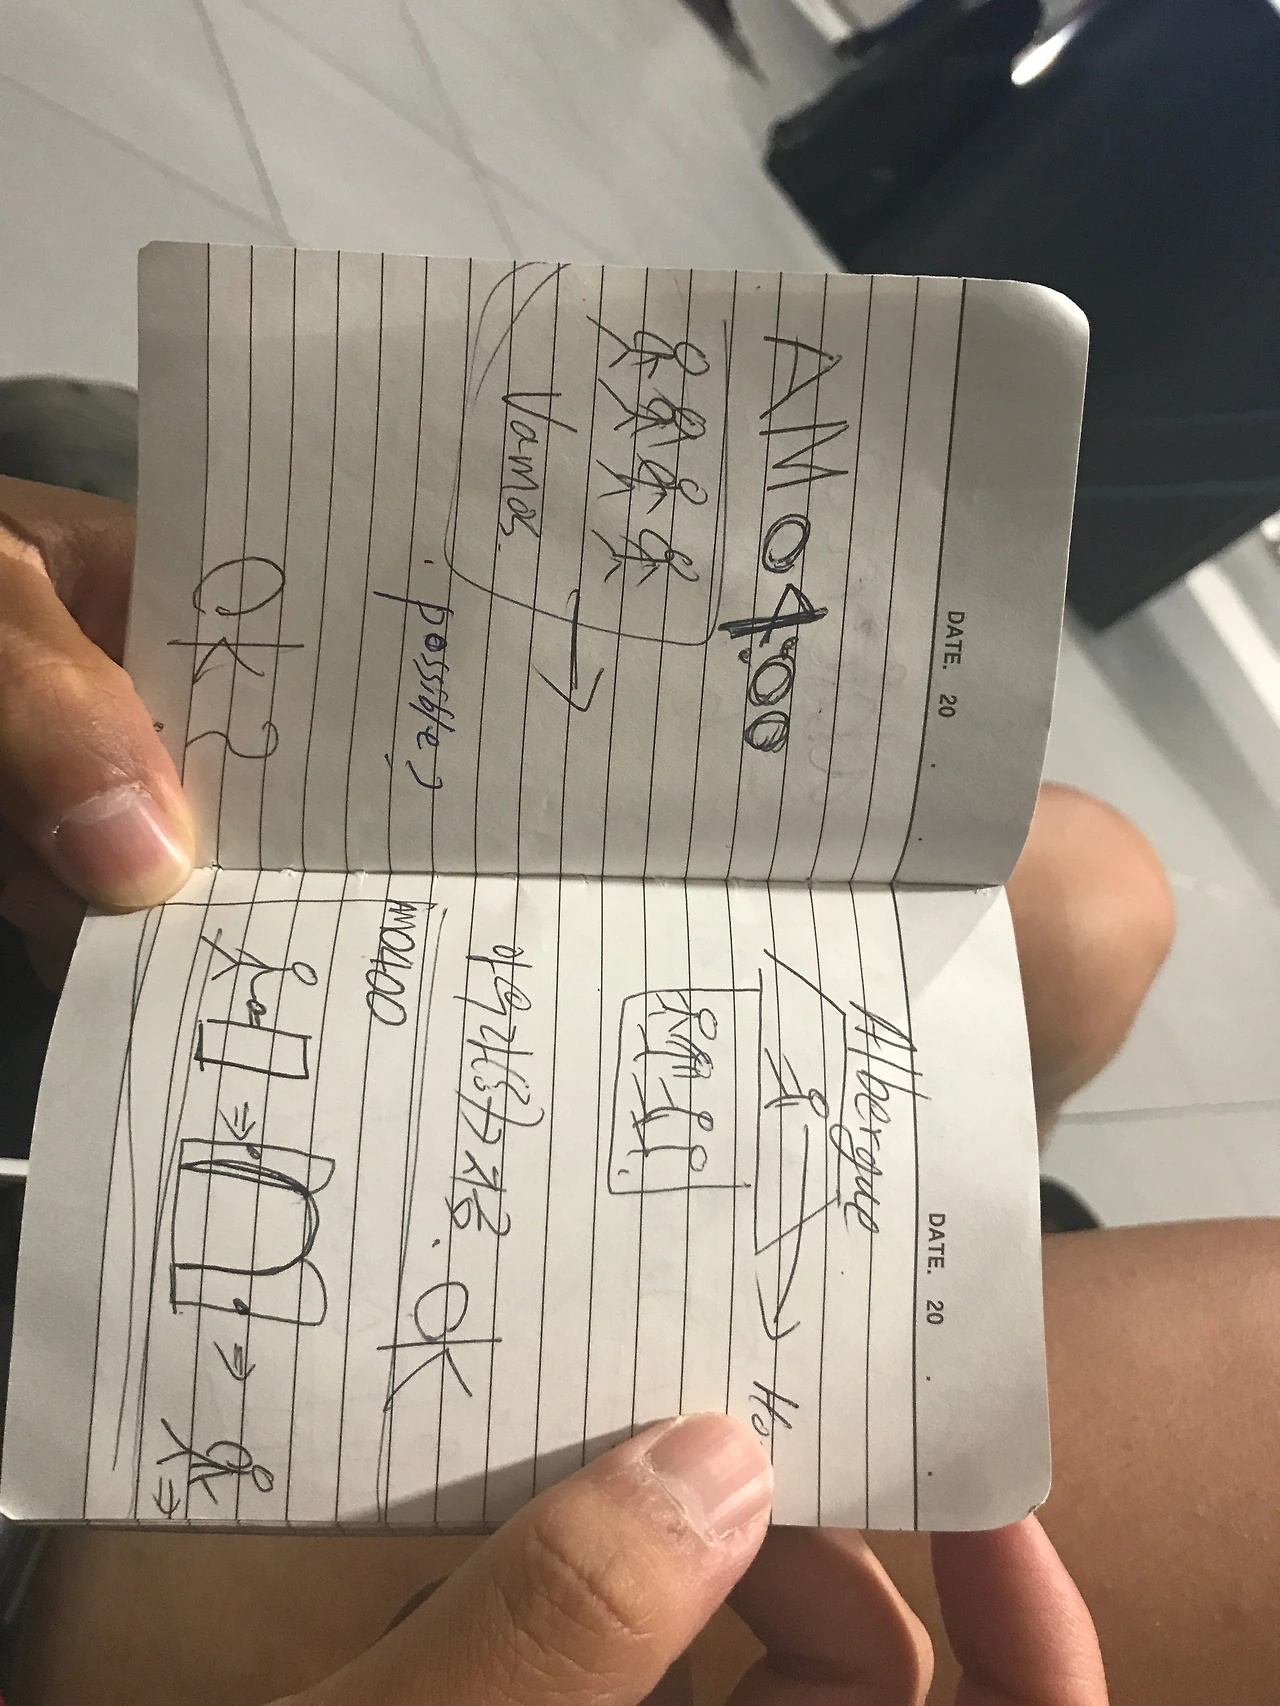 DATE. 20 . .
AM 04:00
Vamos.
possible)
OK?
DATE. 20 . .
Albergue
Ho
OK
AM0400